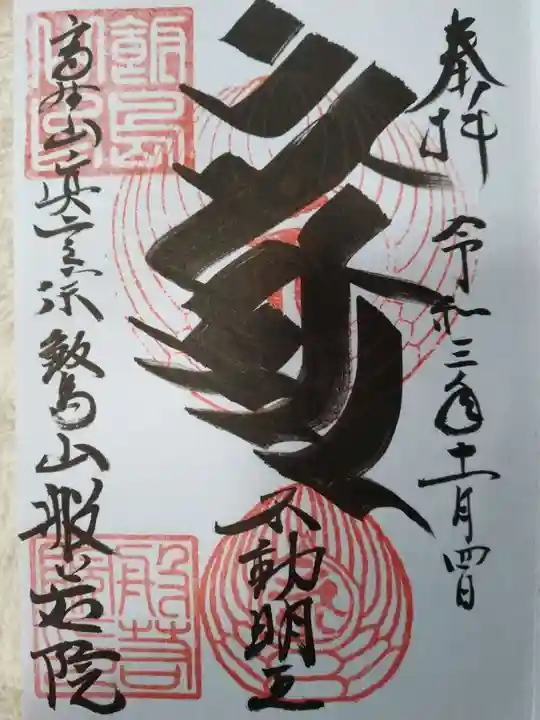 奉拝
令和三年十一月四日
不動明王
高野山真言宗飯島山般若院